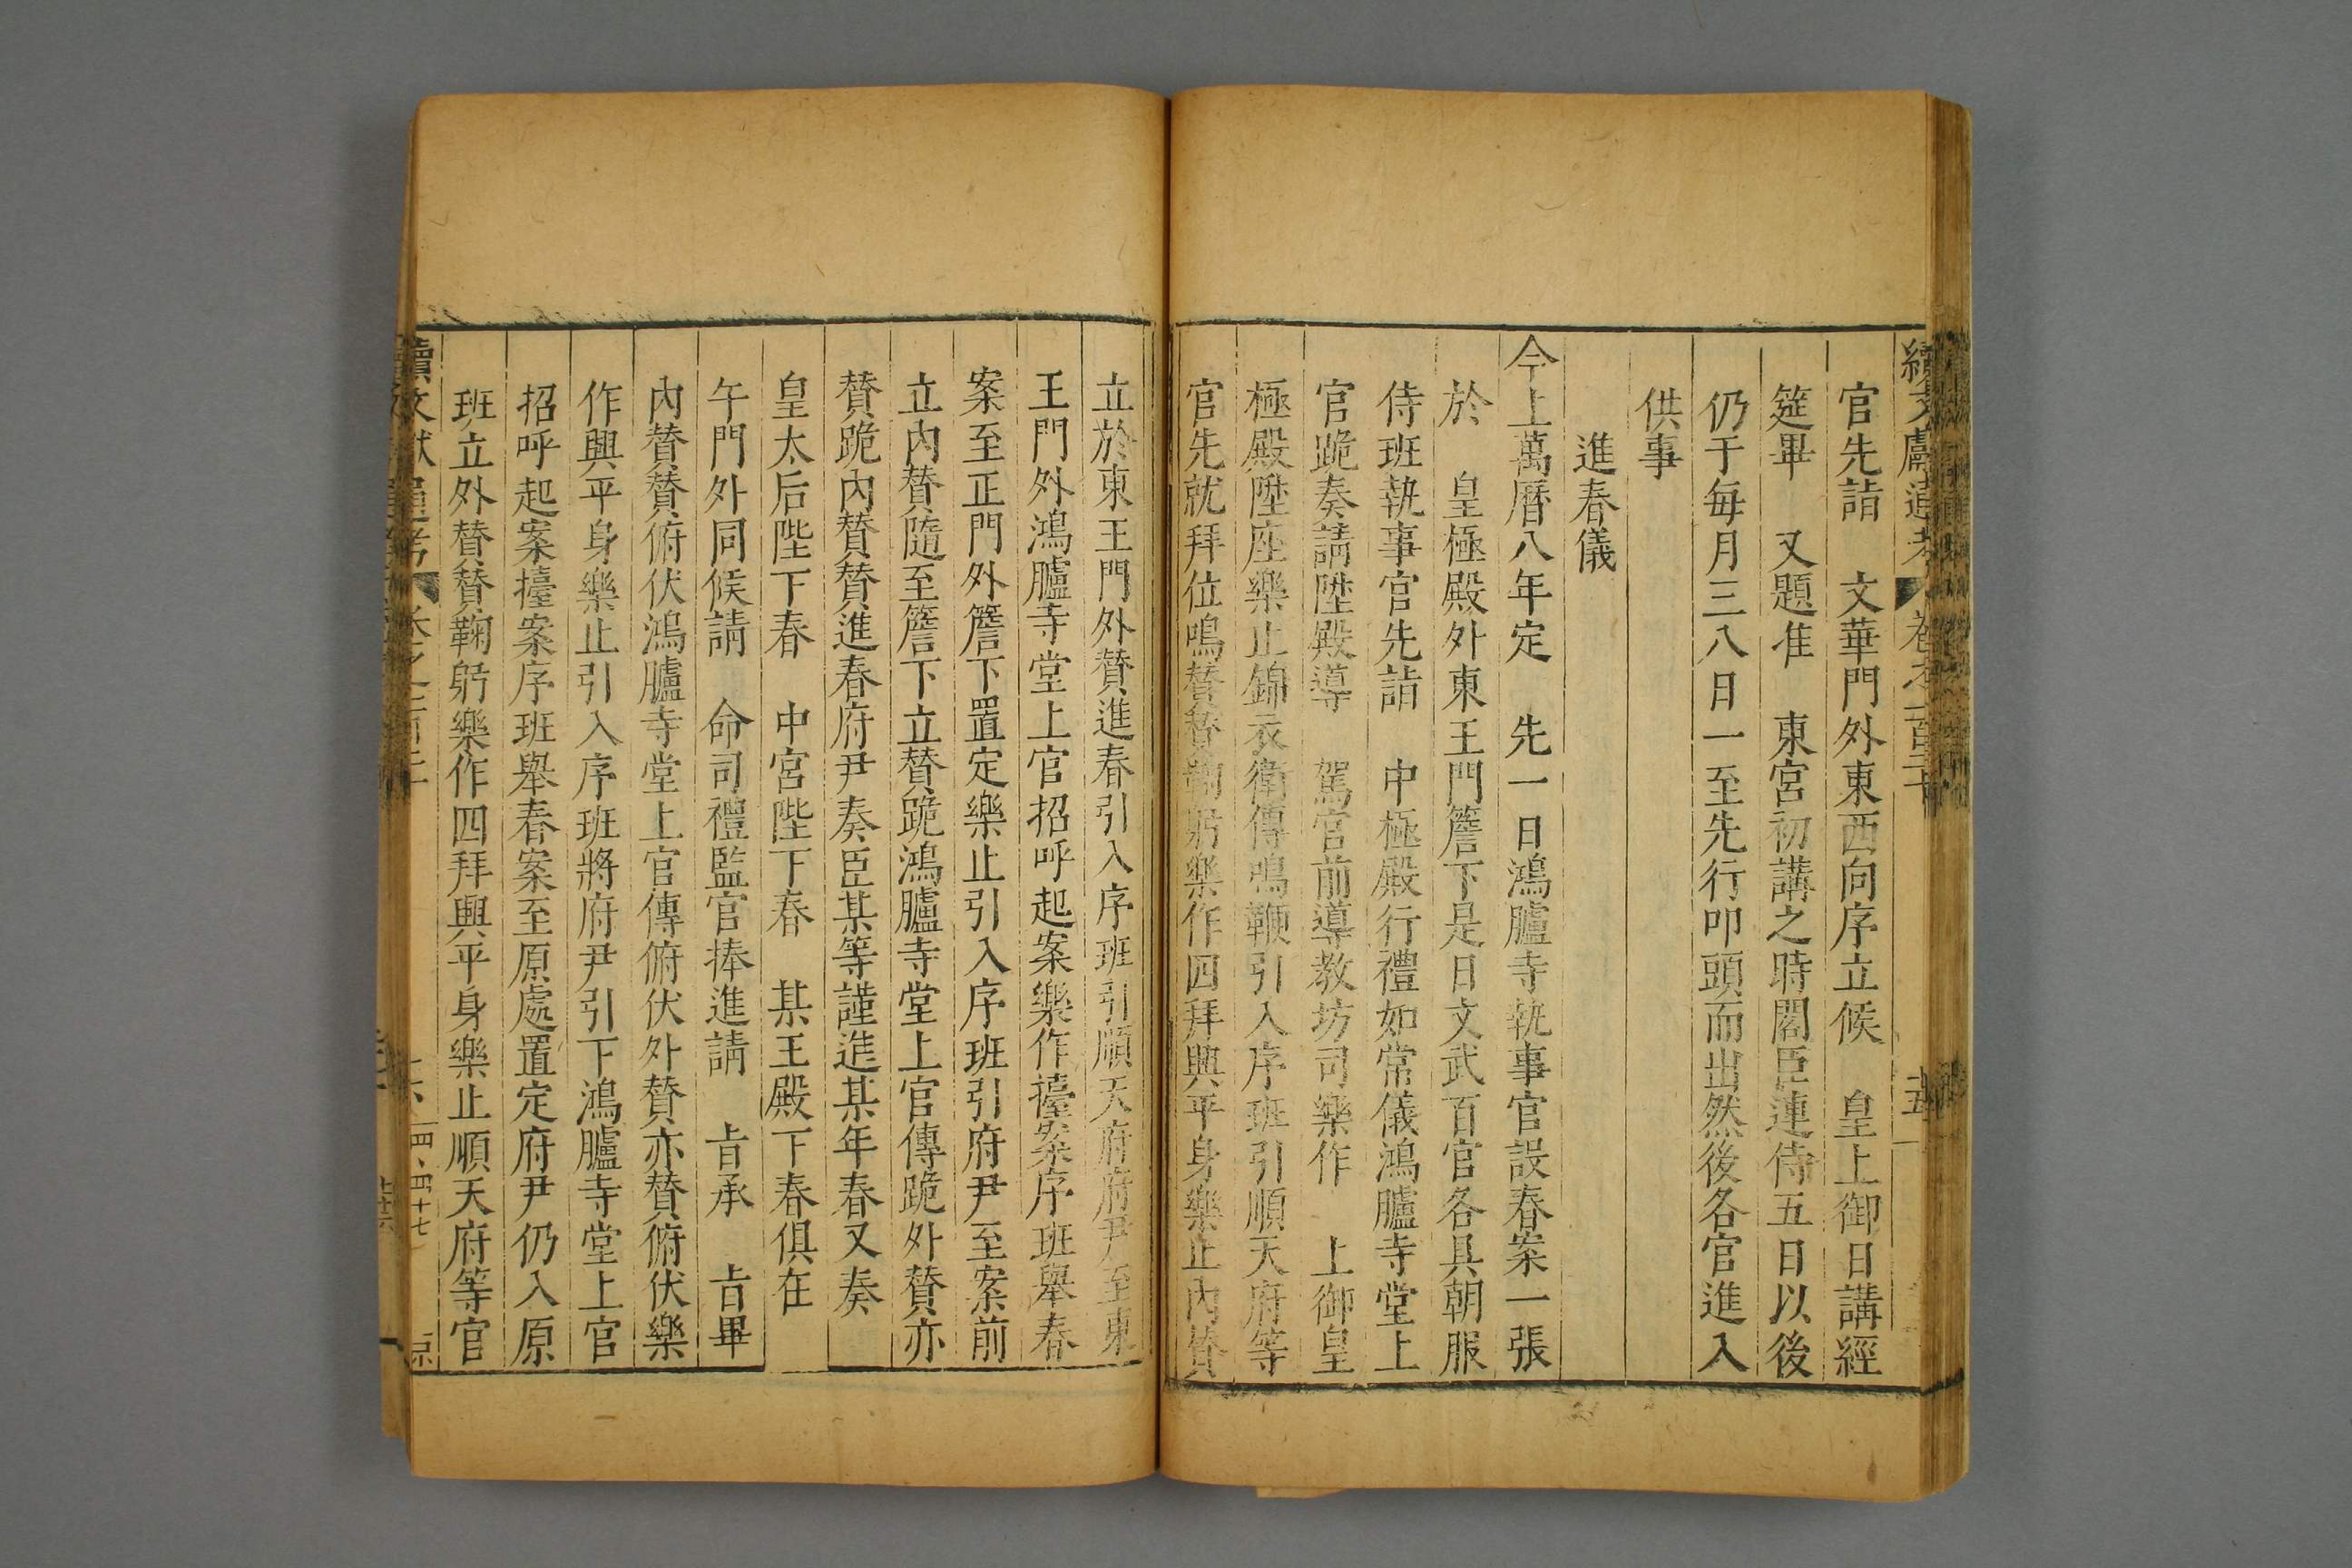 續文獻通考
卷之一百二十
十五
官先詣 文華門外東西向序立候 皇上御日講經
筵畢 又題准 東宮初講之時閣臣連侍五日以後
仍于每月三八日一至先行叩頭而出然後各官進入
供事
進春儀
今上萬曆八年定 先一日鴻臚寺執事官設春案一張
於 皇極殿外東王門簷下是日文武百官各具朝服
侍班執事官先詣 中極殿行禮如常儀鴻臚寺堂上
官跪奏請陞殿導 駕官前導教坊司樂作 上御皇
極殿陞座樂止錦衣衛傳鳴鞭引入序班引順天府等
官先就拜位鳴贊贊鞠躬樂作四拜興平身樂止內贊
立於東王門外贊進春引入序班引順天府府尹至東
王門外鴻臚寺堂上官招呼起案樂作擡案序班舉春
案至正門外簷下置定樂止引入序班引府尹至案前
立內贊隨至簷下立贊跪鴻臚寺堂上官傳跪外贊亦
贊跪內贊贊進春府尹奏臣某等謹進某年春又奏
皇太后陛下春 中宮陛下春 某王殿下春俱在
午門外同候請 命司禮監官捧進請 旨承 旨畢
內贊贊俯伏鴻臚寺堂上官傳俯伏外贊亦贊俯伏樂
作興平身樂止引入序班將府尹引下鴻臚寺堂上官
招呼起案擡案序班舉春案至原處置定府尹仍入原
班立外贊贊鞠躬樂作四拜興平身樂止順天府等官
續文獻通考